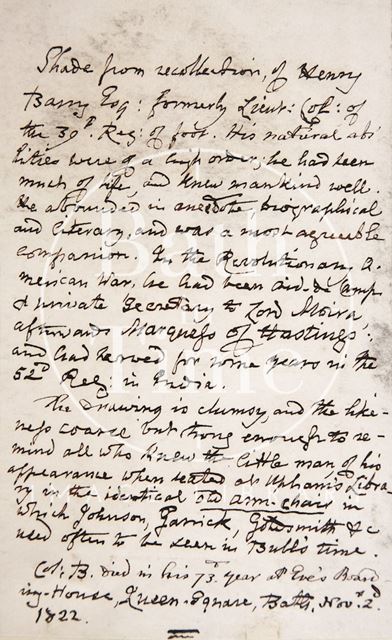 Shade from recollection, of Henry
Barry Esq: formerly Lieut: Col: of
the 39th Reg: of foot. His natural abi
lities were of a high order; he had seen
much of life, and knew mankind well.
He abounded in anecdote, biographical
and literary, and was a most agreeable
companion. In the Revolutionary A-
merican War, he had been aid-de Camp
& private Secretary to Lord Moira
afterwards Marquess of Hastings:
and had served for some years in the
52d Reg: in India.
The drawing is clumsy, and the like-
ness coarse but strong enough to re-
mind all who knew the little man of his
appearance when seated at Upham's Libra
ry in the identical old arm-chair in
which Johnson, Garrick, Goldsmith &c
used often to be seen in Bull's time.
Col: B. died in his 73d year at Eve's Board
ing-House, Queen-Square, Bath, Nov. 2d
1822.
Bath
in
Time